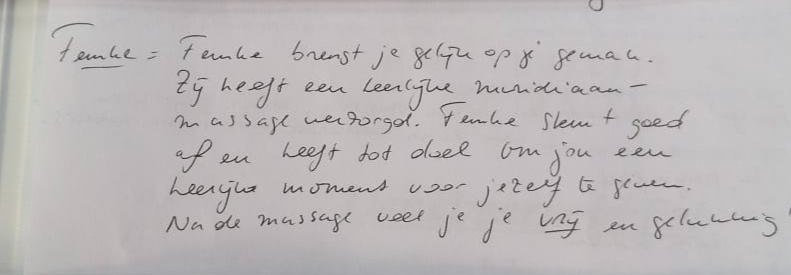 Femke = Femke brengt je gelijk op je gemak.
Zij heeft een heerlijke meridiaan-
massage verzorgd. Femke stemt goed
af en heeft tot doel om jou een
heerlijk moment voor jezelf te geven.
Na de massage voel je je vrij en gelukkig